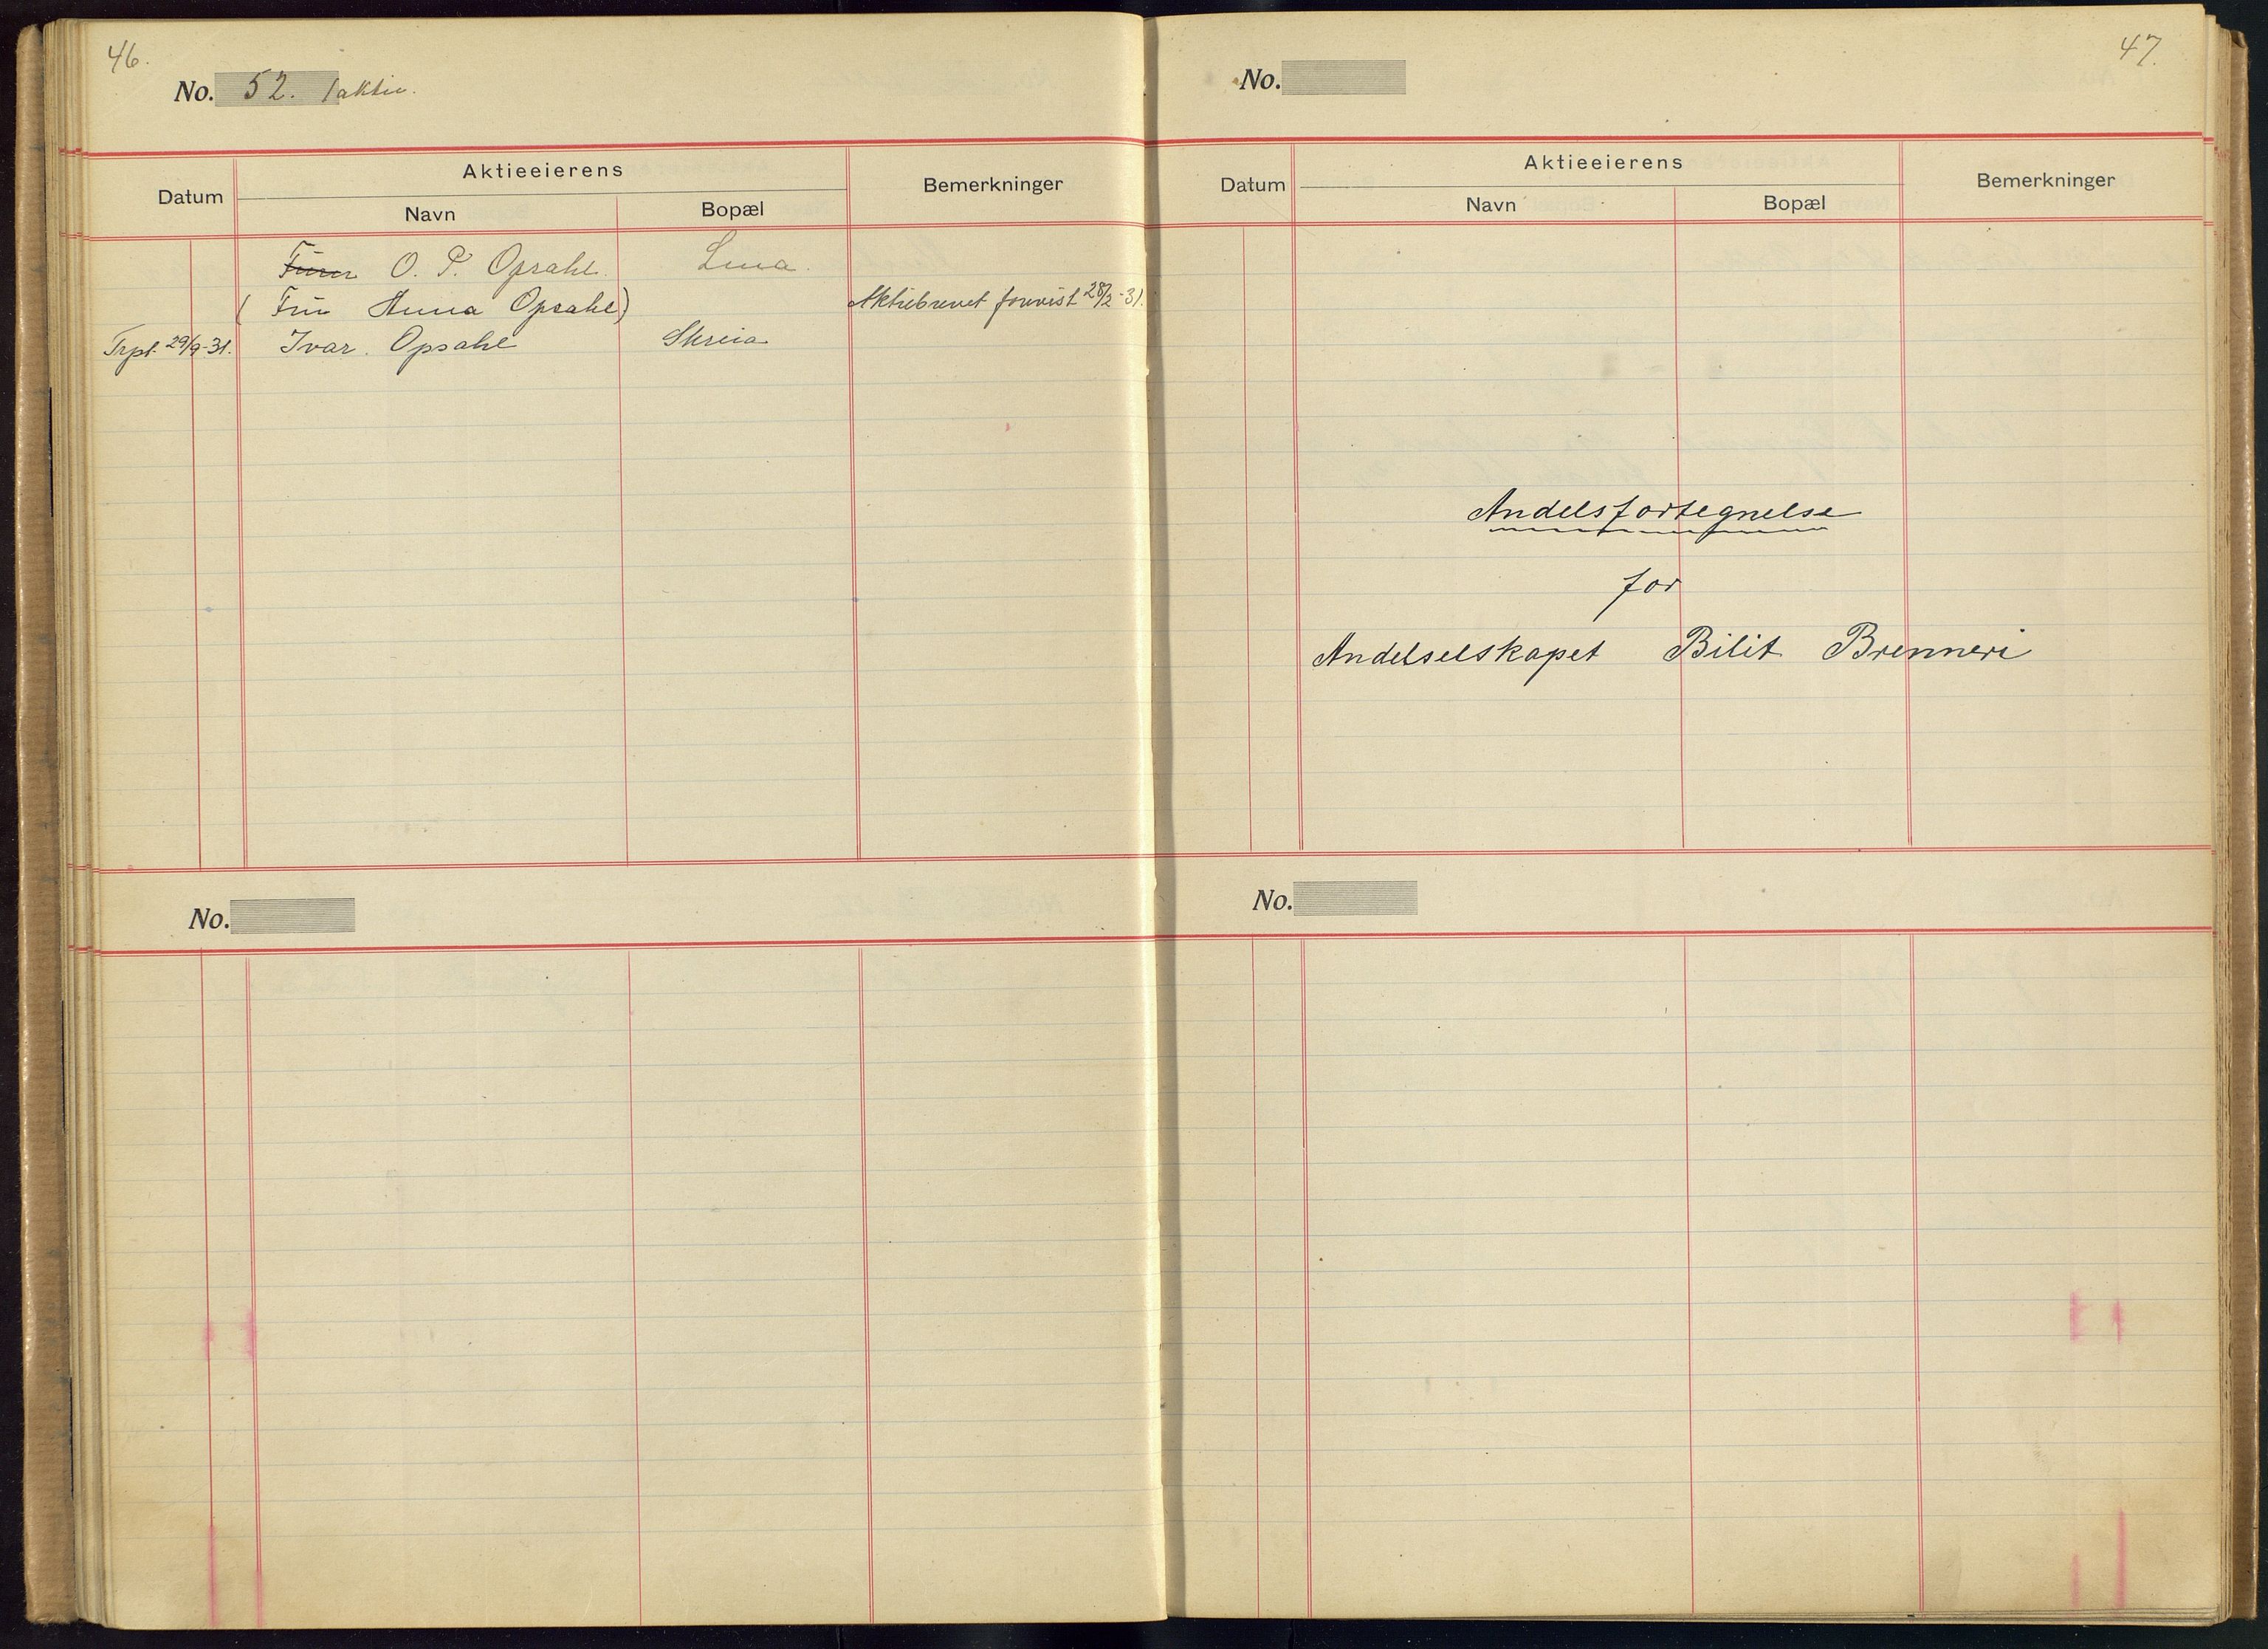 46.
No. 52. 1 aktie.
Aktieeierens
Datum Navn Bopæl Bemerkninger
Furu O. P. Opsahl. Lena.
(Fru Anna Opsahl) Aktiebrevet forevist 28/2-31.
Trpt. 29/9-31. Ivar Opsahl Skreia
No.
47.
No.
Aktieeierens
Datum Navn Bopæl Bemerkninger
Andelsfortegnelse
for
Andelselskapet Bilit Brenneri
No.